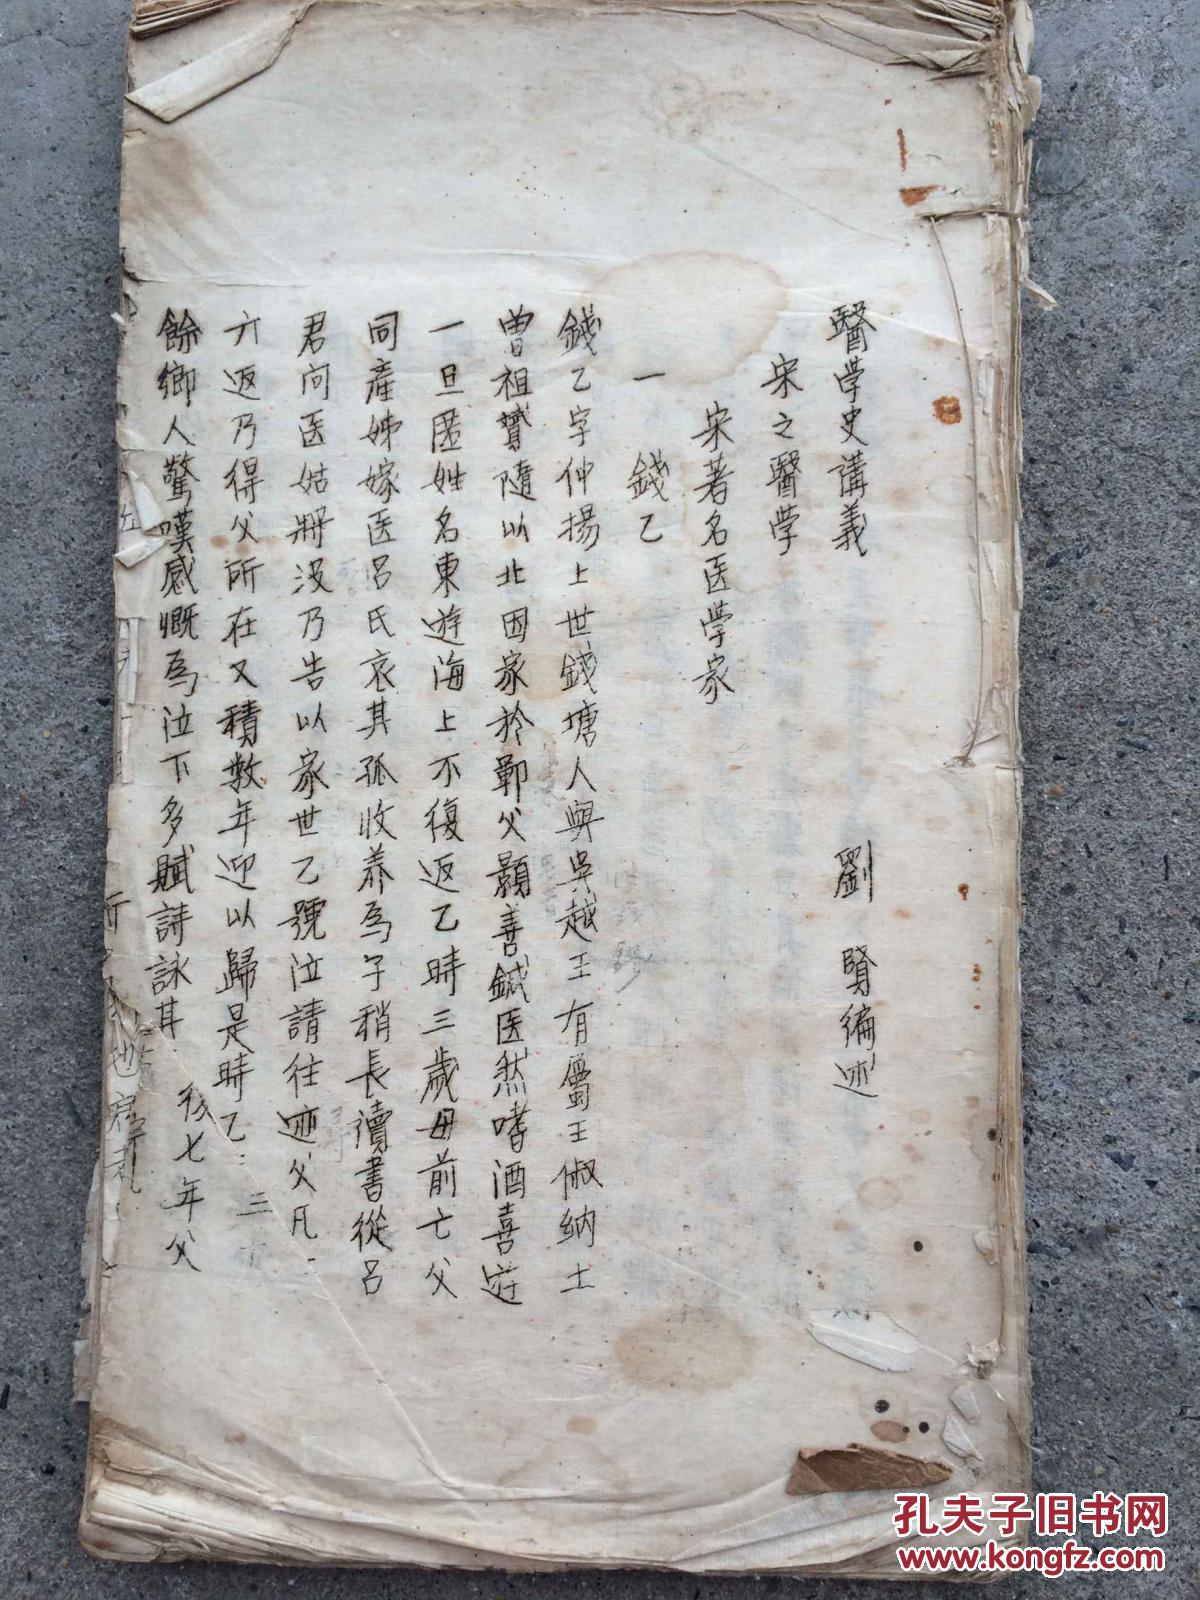 醫學史講義 劉 賢編述
宋之醫學
宋著名医學家
一 錢乙
錢乙字仲揚上世錢塘人與吳越王有屬王俶納土
曾祖贇隨以北因家於鄆父顥善鍼医然嗜酒喜遊
一旦匿姓名東遊海上不復返乙時三歲母前亡父
同產姊嫁医呂氏哀其孤收养為子稍長讀書從呂
君问医姑將没乃告以家世乙號泣請往迹父凡
六返乃得父所在又積数年迎以歸是時乙 三
餘鄉人驚嘆感慨為泣下多賦詩詠其 後七年父
孔夫子旧书网
www.kongfz.com